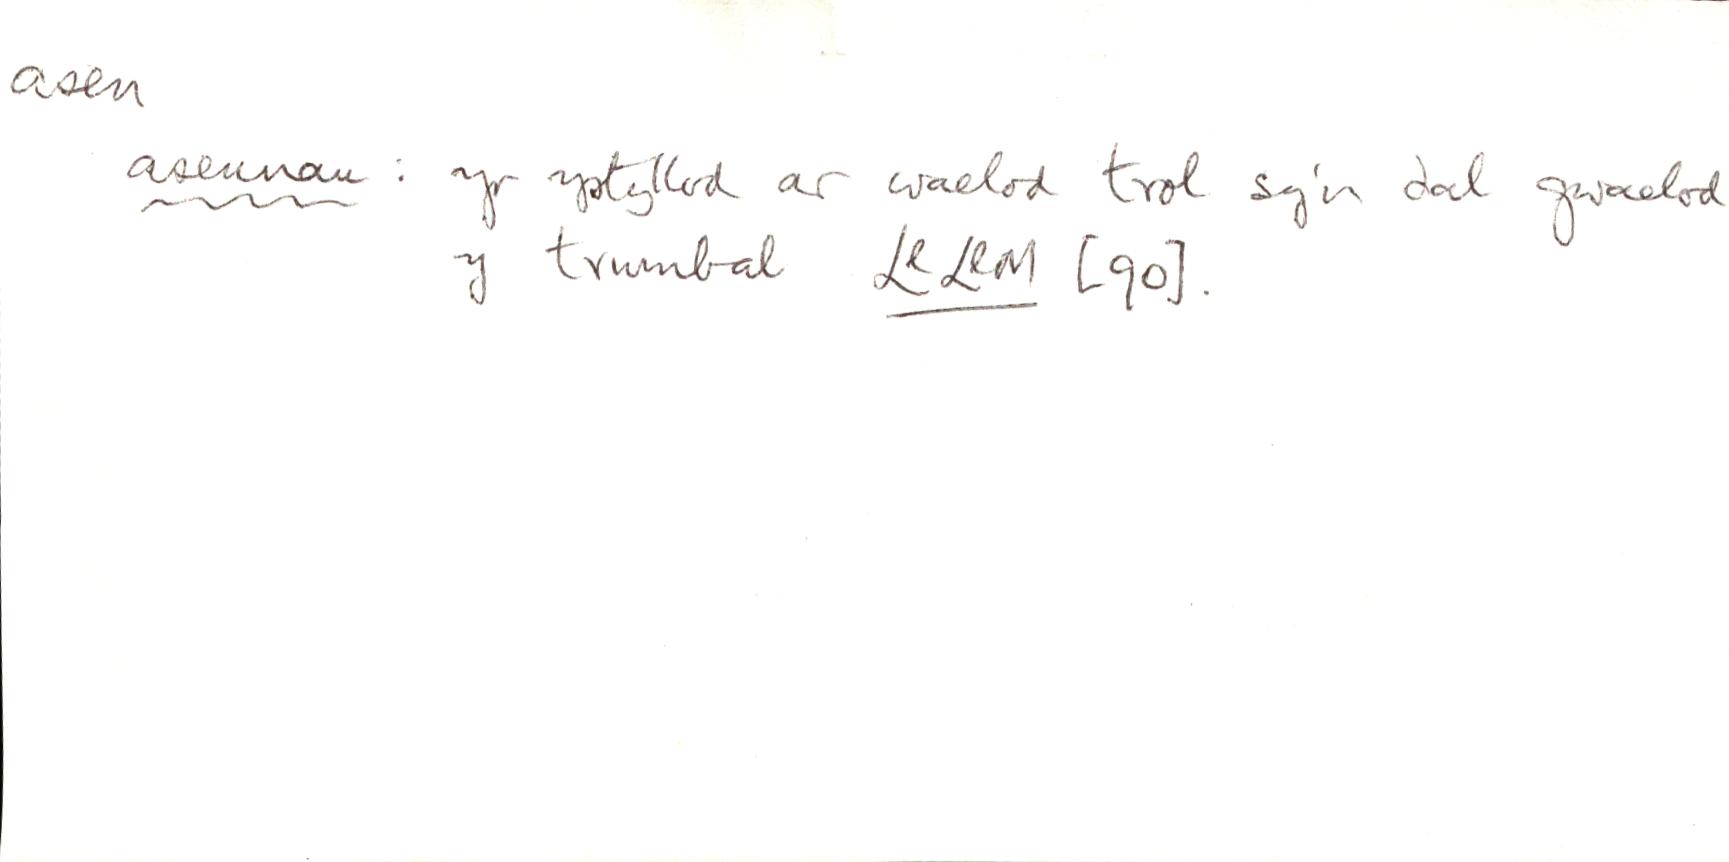 asen
asennau : yr ystyllod ar waelod trol sy'n dal gwaelod
y trumbal LlLlM [90].